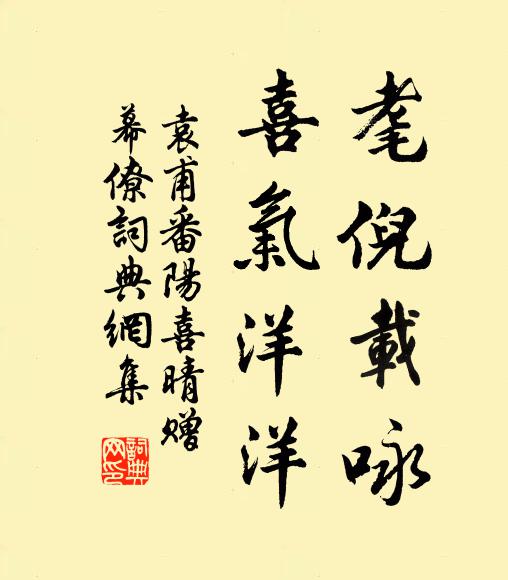 耄倪載咏
喜氣洋洋
袁甫番陽喜晴贈
幕僚詞典網集
詞典網印